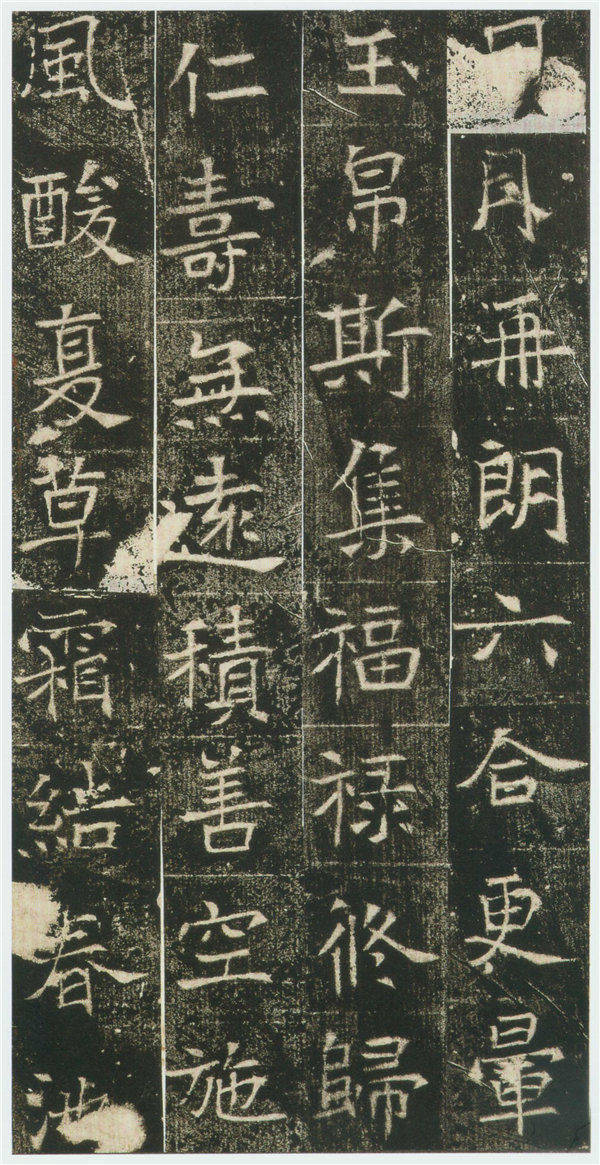 日月再朗六合更暈
玉帛斯集福禄修歸
仁壽無遠積善空施
風酸夏草霜結春池